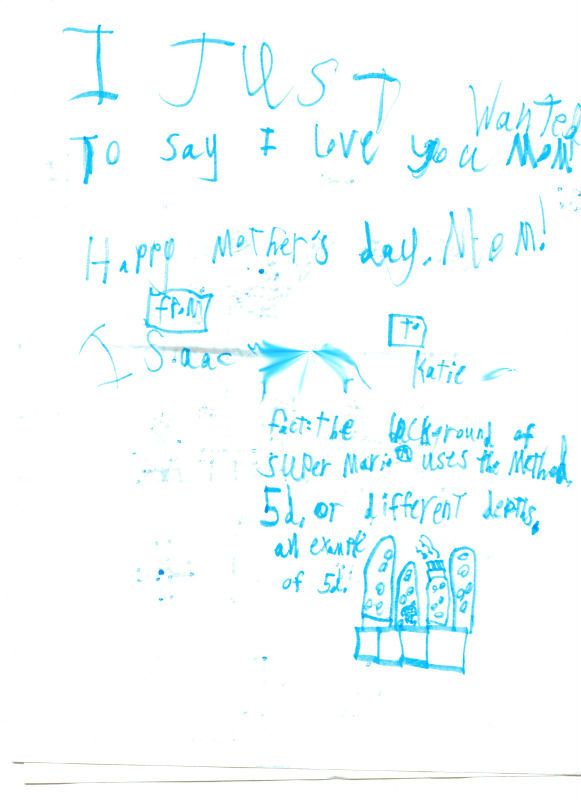 I JUST Wanted
To say I love you MoM!
Happy Mother's day, Mom!
from to
Isaac Katie
fact: the background of
super Mario uses the Method,
5d, or different depths.
an example
of 5d: